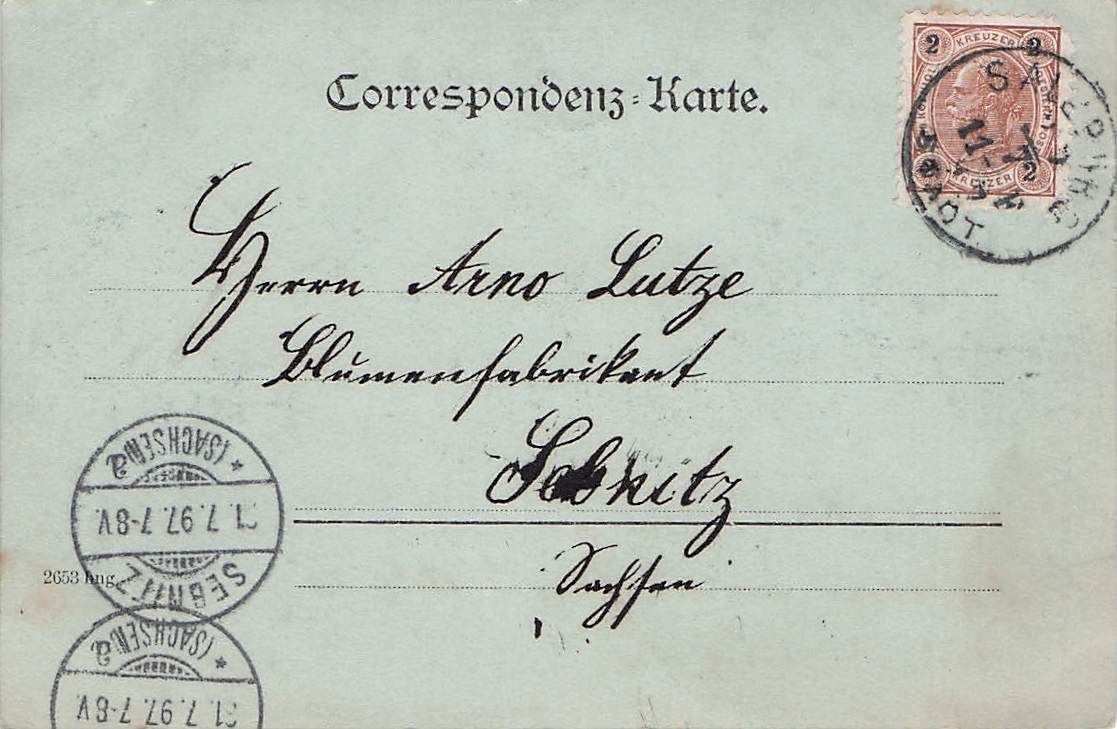 Correspondenz-Karte.
2 KREUZER 2
2 KREUZER 2
SALZBURG
STADT
Herrn Arno Lutze
Blumenfabrikant
Sebnitz
Sachsen
2653 hng
SEBNITZ
1.7.97.7-8V.
* (SACHSEN) a
1.7.97.7-8V.
* (SACHSEN) a